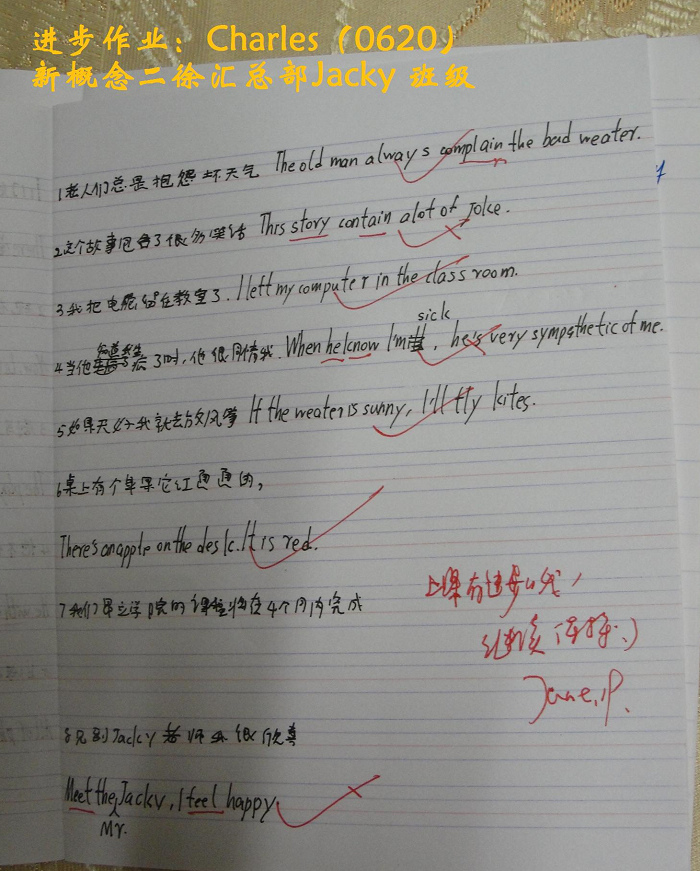 进步作业：Charles（0620）
新概念二徐汇总部Jacky 班级
1老人们总是抱怨坏天气 The old man always complain the bad weater.
2这个故事包含了很多笑话 This story contain alot of Joke.
3我把电脑留在教室了. I left my computer in the class room.
知道我生
sick
4当他病了时,他很同情我. When he know I'm, he's very sympathetic of me.
5如果天好我就去放风筝 If the weater is sunny, I'll fly kites.
6桌上有个苹果它红通通的,
There's an apple on the desk. It is red.
7我们昂立学院的课程将在4个月内完成
上课有进步
继续保持:)
Jane.P.
8见到Jacky老师 很欣喜
Meet the Jacky, I feel happy.
Mr.